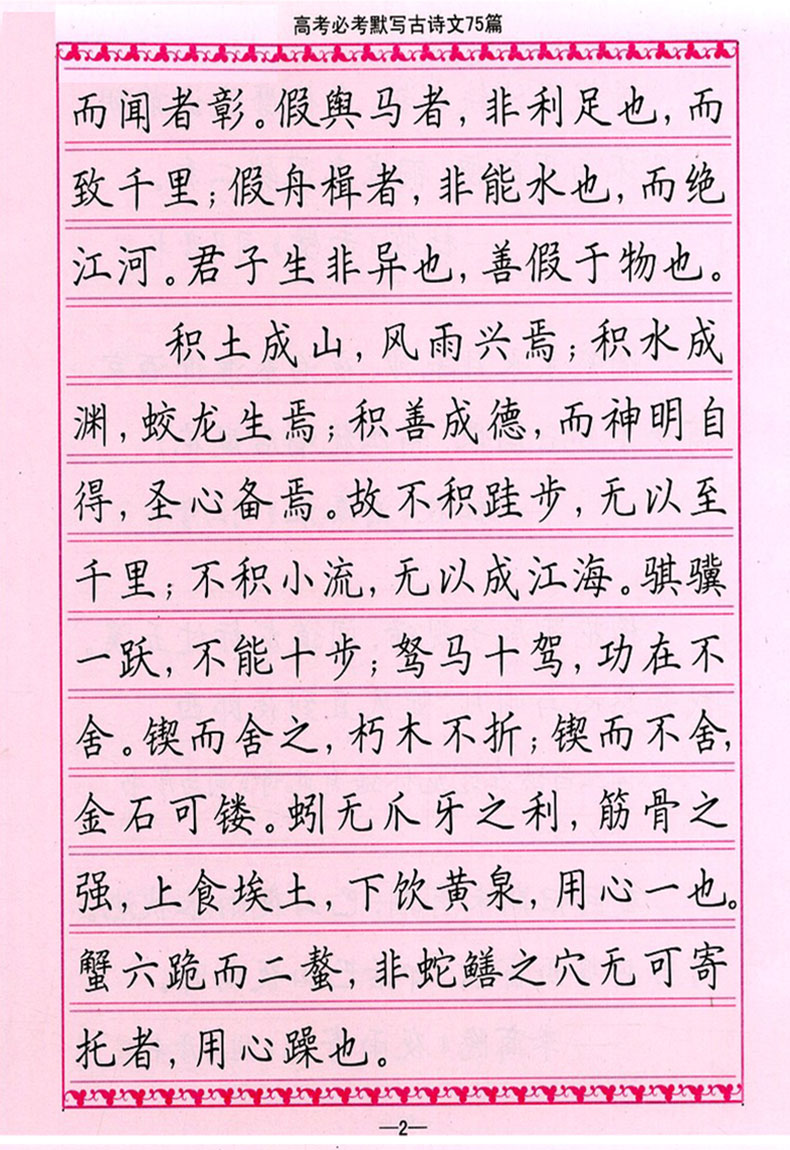 高考必考默写古诗文75篇
而闻者彰。假舆马者,非利足也,而
致千里;假舟楫者,非能水也,而绝
江河。君子生非异也,善假于物也。
积土成山,风雨兴焉;积水成
渊,蛟龙生焉;积善成德,而神明自
得,圣心备焉。故不积跬步,无以至
千里;不积小流,无以成江海。骐骥
一跃,不能十步;驽马十驾,功在不
舍。锲而舍之,朽木不折;锲而不舍,
金石可镂。蚓无爪牙之利,筋骨之
强,上食埃土,下饮黄泉,用心一也。
蟹六跪而二螯,非蛇鳝之穴无可寄
托者,用心躁也。
—2—